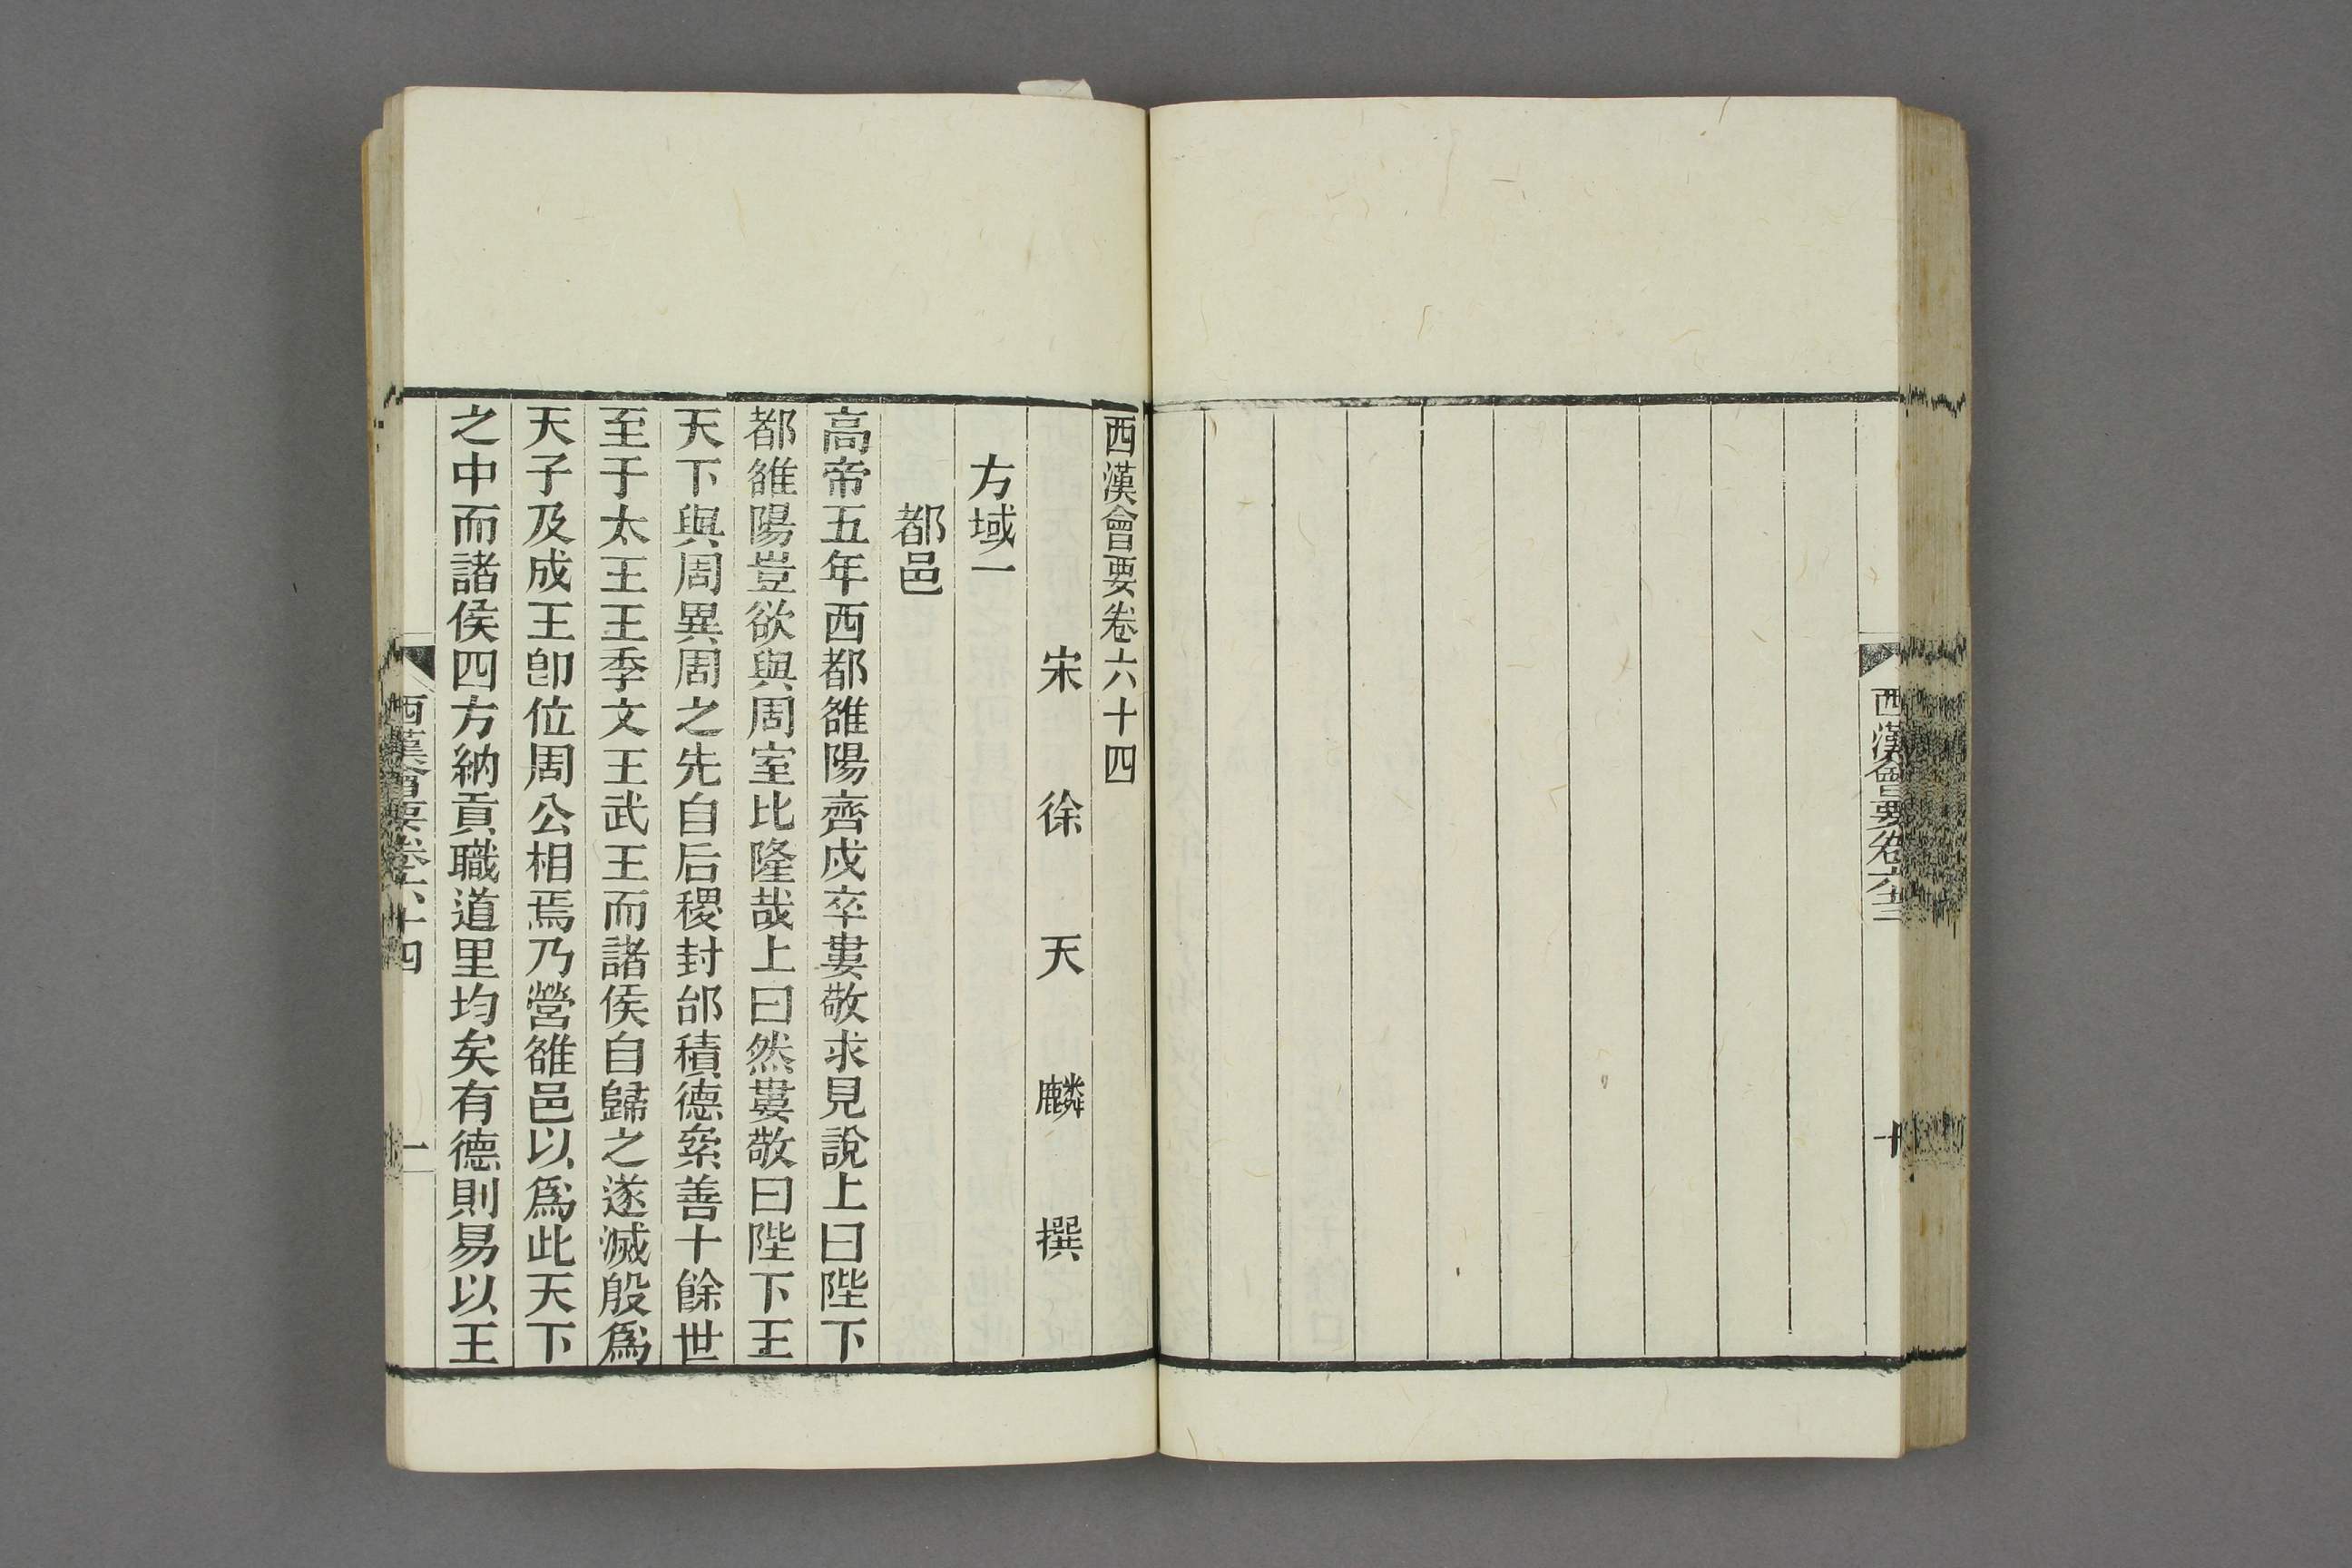 西漢會要卷六十三
十
西漢會要卷六十四
宋徐天麟撰
方域一
都邑
高帝五年西都雒陽齊戍卒婁敬求見說上曰陛下
都雒陽豈欲與周室比隆哉上曰然婁敬曰陛下王
天下與周異周之先自后稷封邰積德絫善十餘世
至于太王王季文王武王而諸侯自歸之遂滅殷爲
天子及成王卽位周公相焉乃營雒邑以爲此天下
之中而諸侯四方納貢職道里均矣有德則易以王
西漢會要卷六十四
一